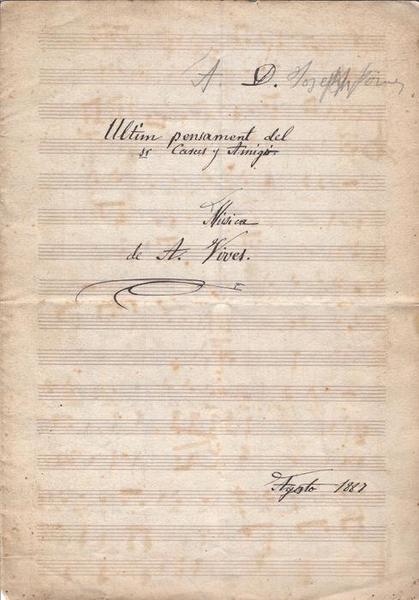 A. D. Joseph
Ultim pensament del
sr Casas y Amigó.
Música
de A. Vives.
Agosto 1887